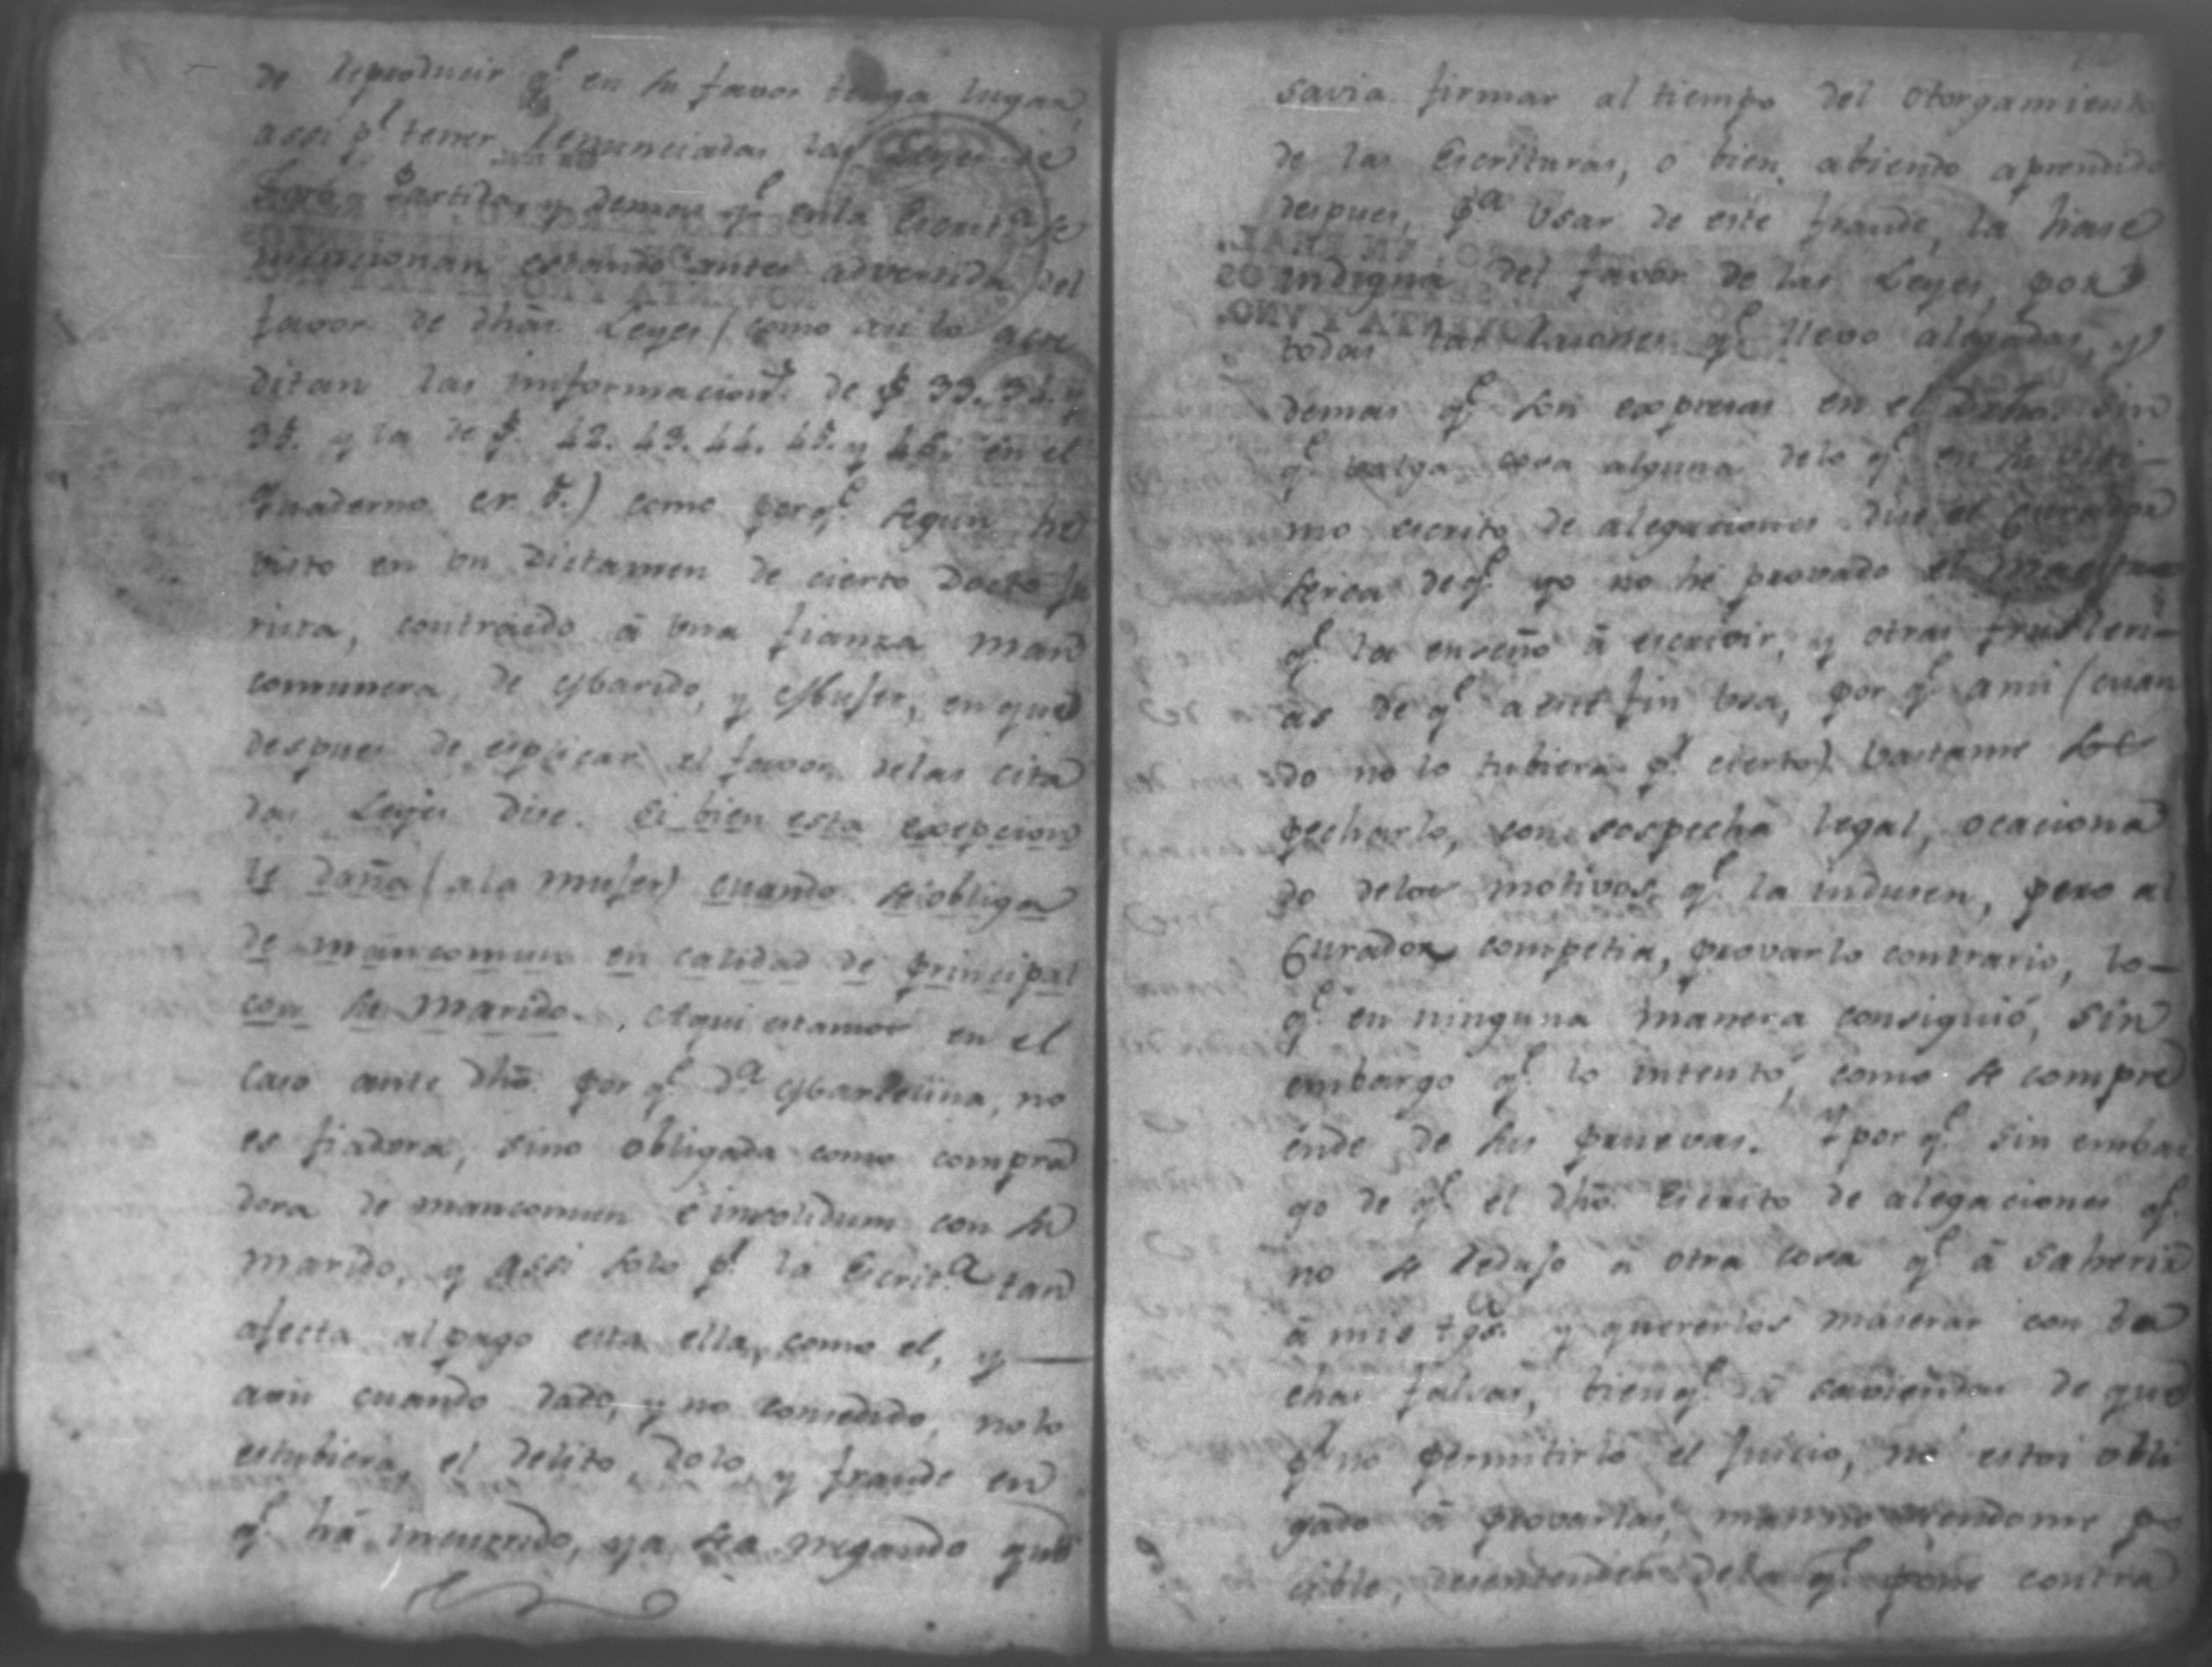 de reproducir q.e en su favor tenga lugar,
assi p.r tener renunciadas las Leyes de
Toro, Partida, y demas q.e en la Escrit.a se
mencionan estando antes advertida del
favor de dhãs Leyes (como asi lo acre
ditan las imformacion.s de f. 33. 34. y
35. y la de f. 42. 43. 44. 45. y 46. en el
Quaderno cr. 5.) como porq.e segun he
visto en vn Dictamen de cierto Docto Ju
rista, contraido â vna fianza man
comunera de Marido, y Mujer, en que
despues de esplicar el favor delas cita
das Leyes dise. Si bien esta excepcion
le daña (a la Mujer) cuando se obliga
de mancomun en calidad de principal
con su Marido. Aqui estamos en el
caso ante dhõ. por q.e D.a Marcelina, no
es fiadora, sino obligada como compra
dora de mancomun ê insolidum con su
marido, y assi solo p.r la Escrit.a tan
afecta al pago esta ella, como el, y
aun cuando dado, y no consedido, no lo
estubiera, el delito, dolo, y fraude en
q.e hâ incurrido, ya sea negando que
savia firmar al tiempo del otorgamiento
de las Escrituras, o bien, abiendo aprendido
despues, p.a vsar de este fraude, la hase
indigna del favor de las Leyes, por
todas las rasones q.e llevo alegadas, y
demas q.e son expresas en el drcho. sin
q.e valga cosa alguna delo q.e en su ulti-
mo escrito de alegaciones dise el Curador
serca de q.e yo no hé provado el Maestro
q.e la enseñó â escrivir, y otras frusleri-
as de q.e a este fin vsa, por q.e a mi (cuan
do no lo tubiera p.r cierto) bastame sos
pecharlo, con sospecha legal, ocaciona
do delos motivos q.e la indusen, pero al
Curador competia, provar lo contrario, lo-
q.e en ninguna manera consiguió, sin
embargo q.e lo intentó, como se compre
ende de sus pruevas. Y por q.e sin embar
go de q.e el dhõ. Escrito de alegaciones q.e
no se redujo a otra cosa q.e â saherir
â mis tgõs. y quererlos macerar con ta
chas falsas, bien q.e â saviendas de que
p.r no permitirlo el Juicio, no estoi obli
gado â provarlas, siendome po
cible, desentender dela q.e pone contra